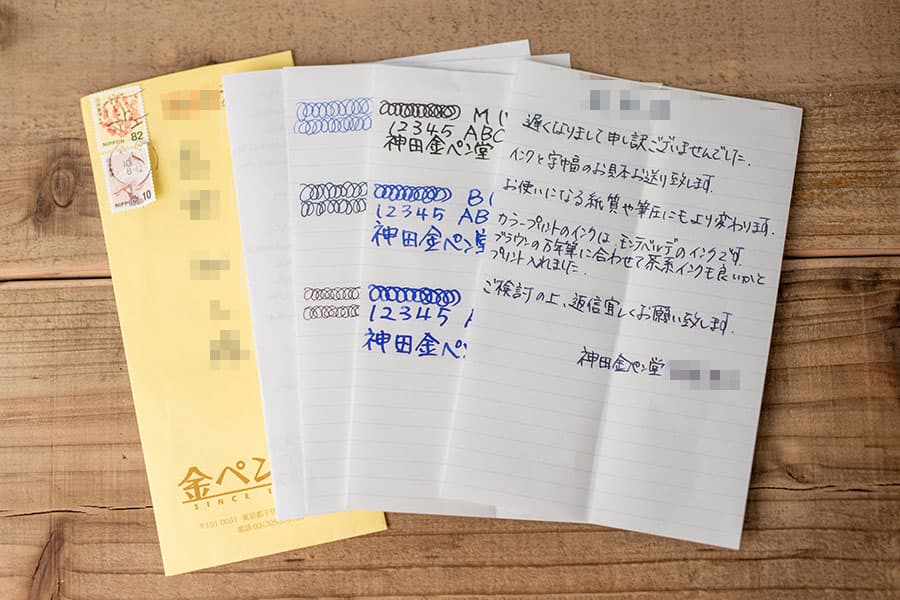 82
NIPPON
NIPPON 10
金ペン
SINCE 1
〒101-0051 東京都千代
電話 03(329
M
12345 ABC
神田金ペン堂
B
12345 AB
神田金ペン堂
12345
神田金ペン
遅くなりまして申し訳ございませんでした.
インクと字巾幅のお見本お送り致します.
お使いになる紙質や筆圧にもより変わります.
カラープリントのインクは、モンテベルデのインクです.
ブラウンの万年筆に合わせて茶系インクも良いかと
プリント入れました.
ご検討の上、返信宜しくお願い致します.
神田金ペン堂